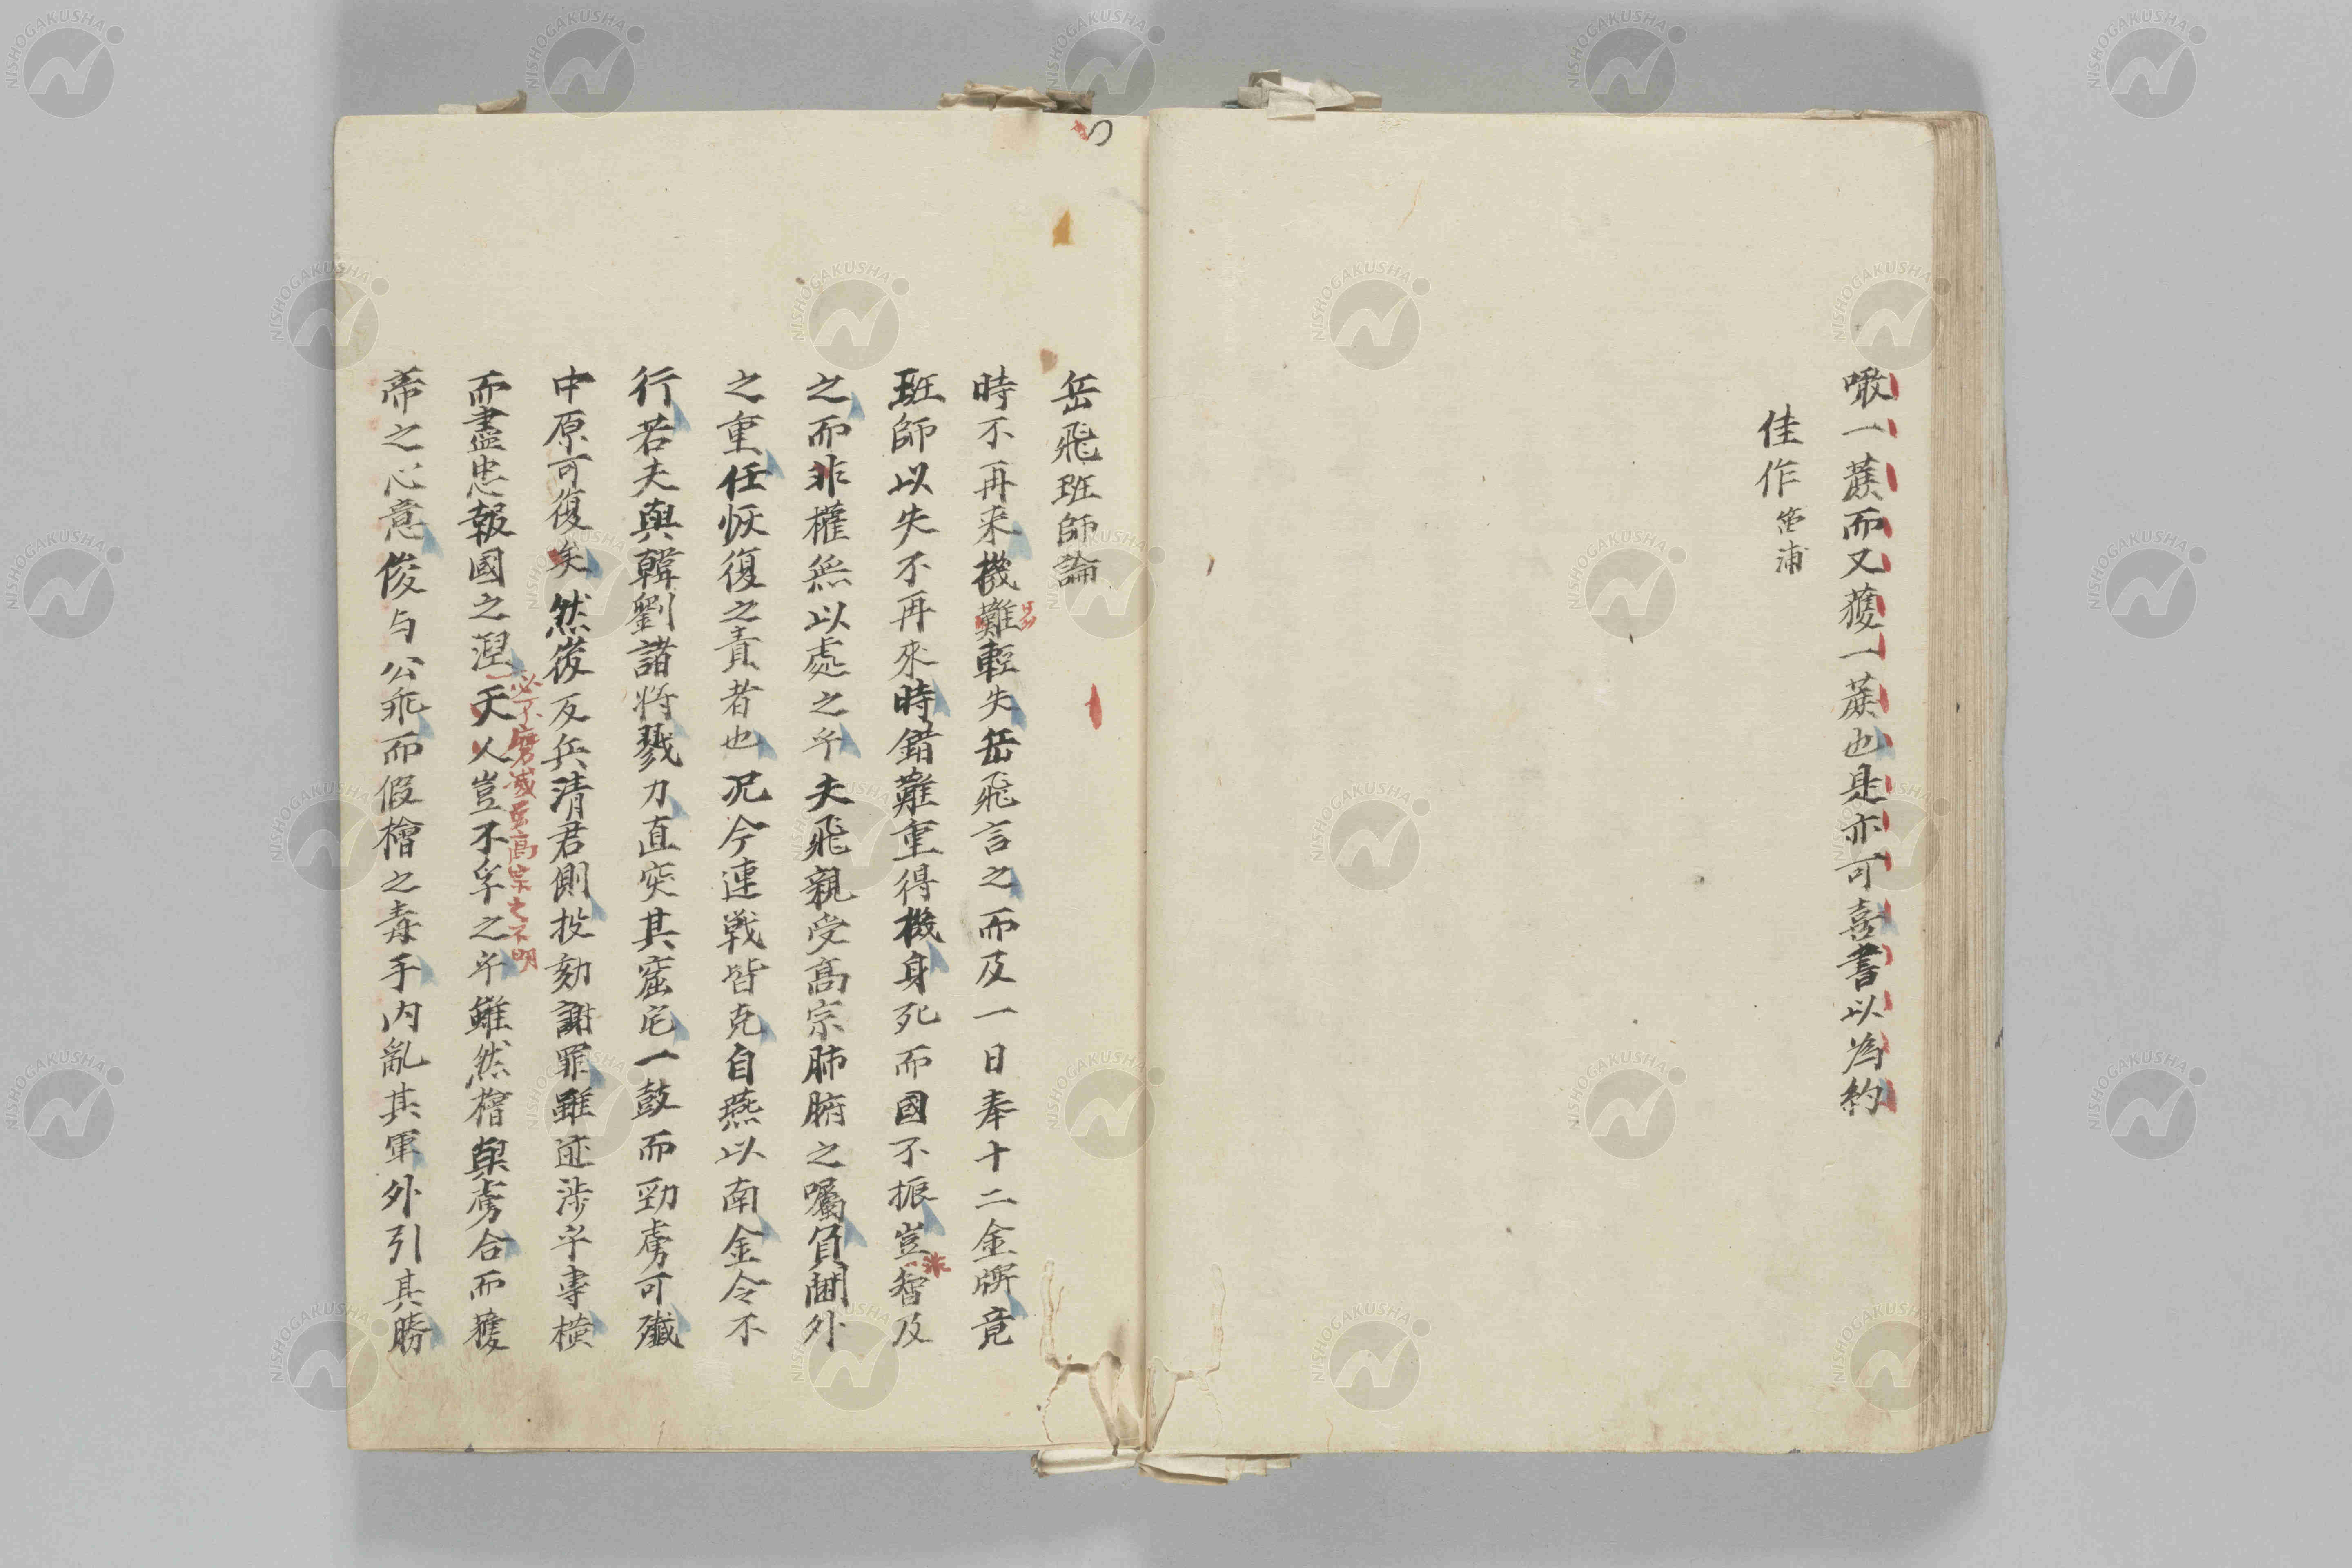 噉一蔗而又獲一蔗也是亦可喜書以為約
佳作 笛浦
岳飛班師論
時不再来機難輕失岳飛言之而及一日奉十二金牌竟
易
班師以失不再來時錯難重得機身死而國不振豈智及
之而非權無以處之乎夫飛親受高宗肺腑之囑負閫外
之重任恢復之責者也况今連戦皆克自燕以南金令不
行若夫與韓劉諸将戮力直突其窟宅一鼓而勁虜可殲
中原可復矣然後反兵清君側投劾謝罪雖迹渉乎専橫
必不磨滅至高宗之不明
而盡忠報國之涅天人豈不孚之乎雖然檜與虜合而獲
帝之心意俊与公乖而假檜之毒手内亂其軍外引其勝
NISHOGAKUSHA